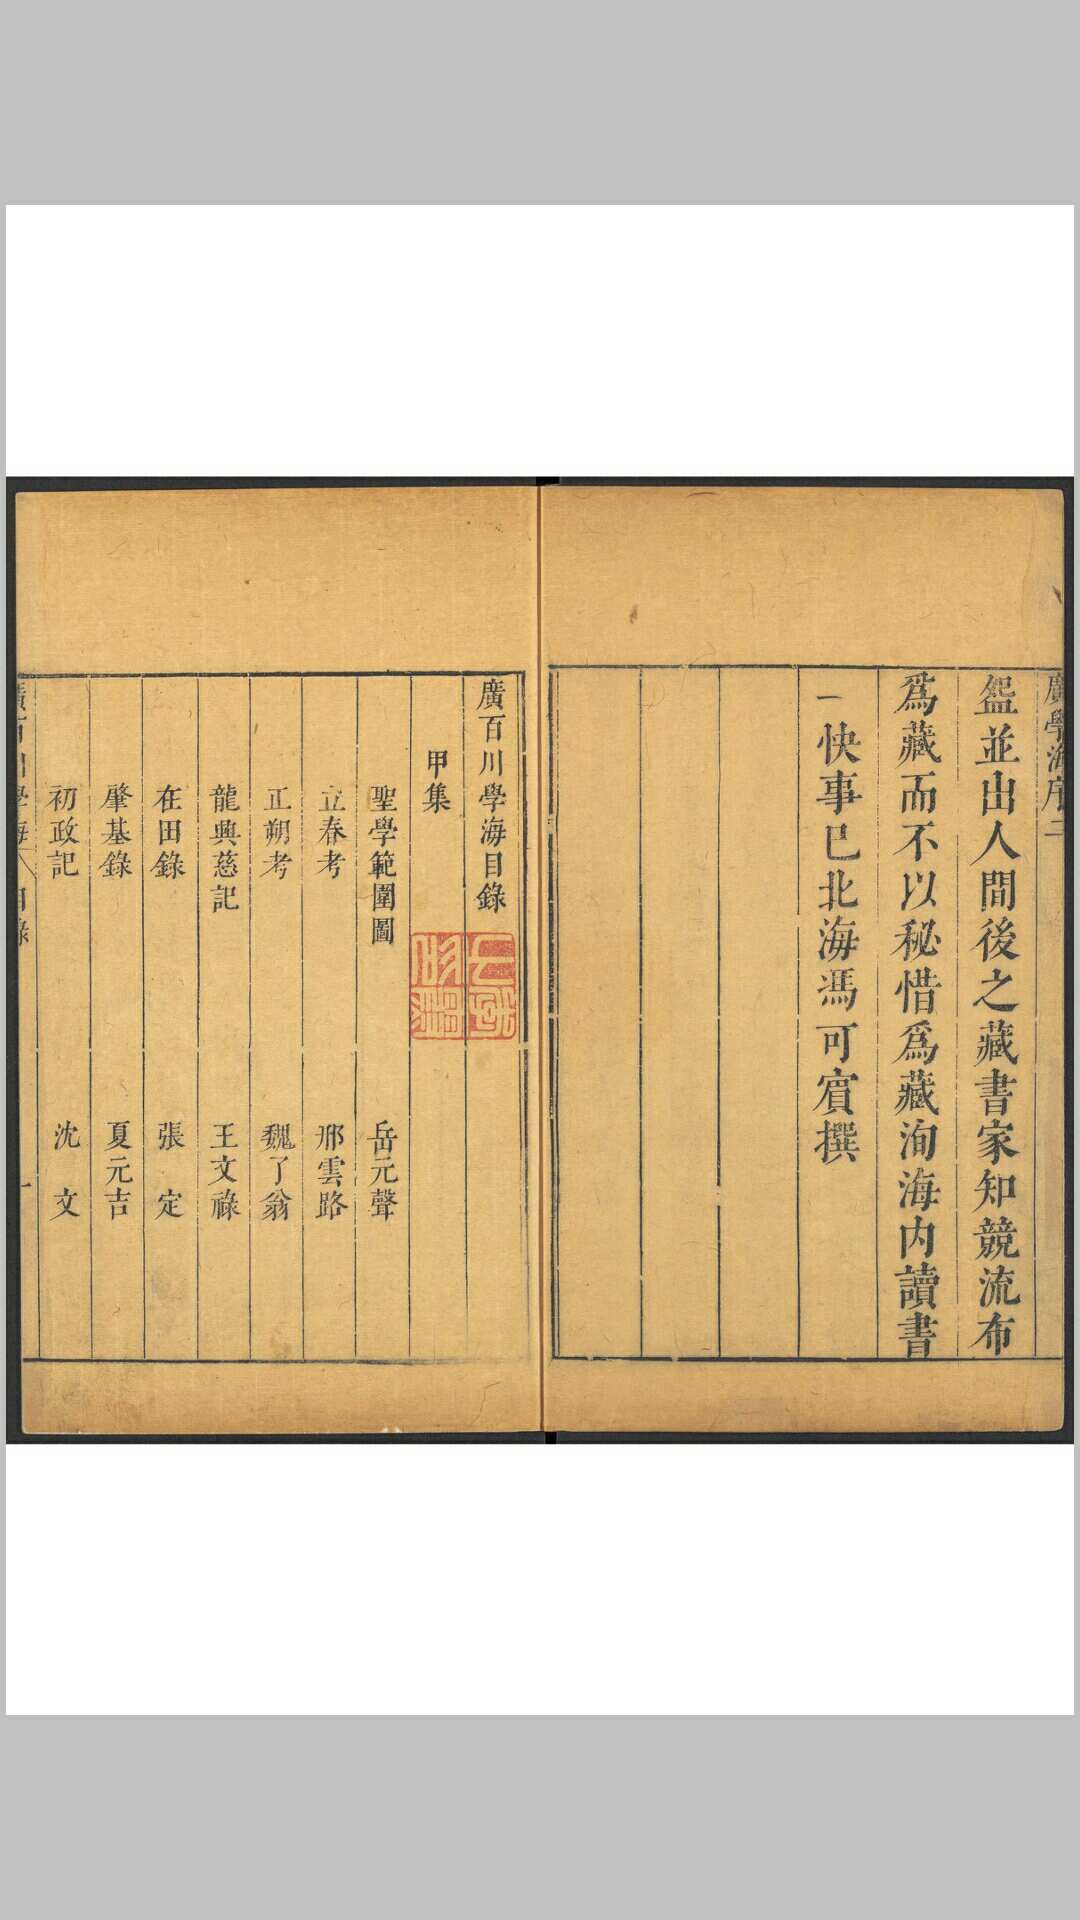 廣學海序
盌並出人間後之藏書家知競流布
爲藏而不以秘惜爲藏洵海内讀書
一快事已北海馮可賓撰
廣百川學海目錄
甲集
聖學範圍圖 岳元聲
立春考 邢雲路
正朔考 魏了翁
龍興慈記 王文祿
在田錄 張定
肇基錄 夏元吉
初政記 沈文
廣百川學海 目錄 一